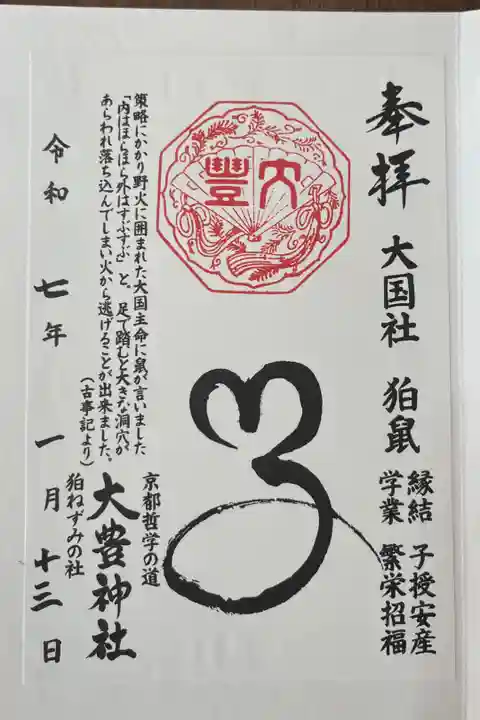 奉拝 大国社 狛鼠
縁結 子授安産
学業 繁栄招福
大豊
子
策略にかかり野火に囲まれた大国主命に鼠が言いました
「内はほらほら外はすぶすぶ」と、足で踏むと大きな洞穴が
あらわれ落ち込んでしまい火から逃げることが出来ました。
(古事記より)
京都哲学の道
大豊神社
狛ねずみの社
令和 七年 一月 十三日